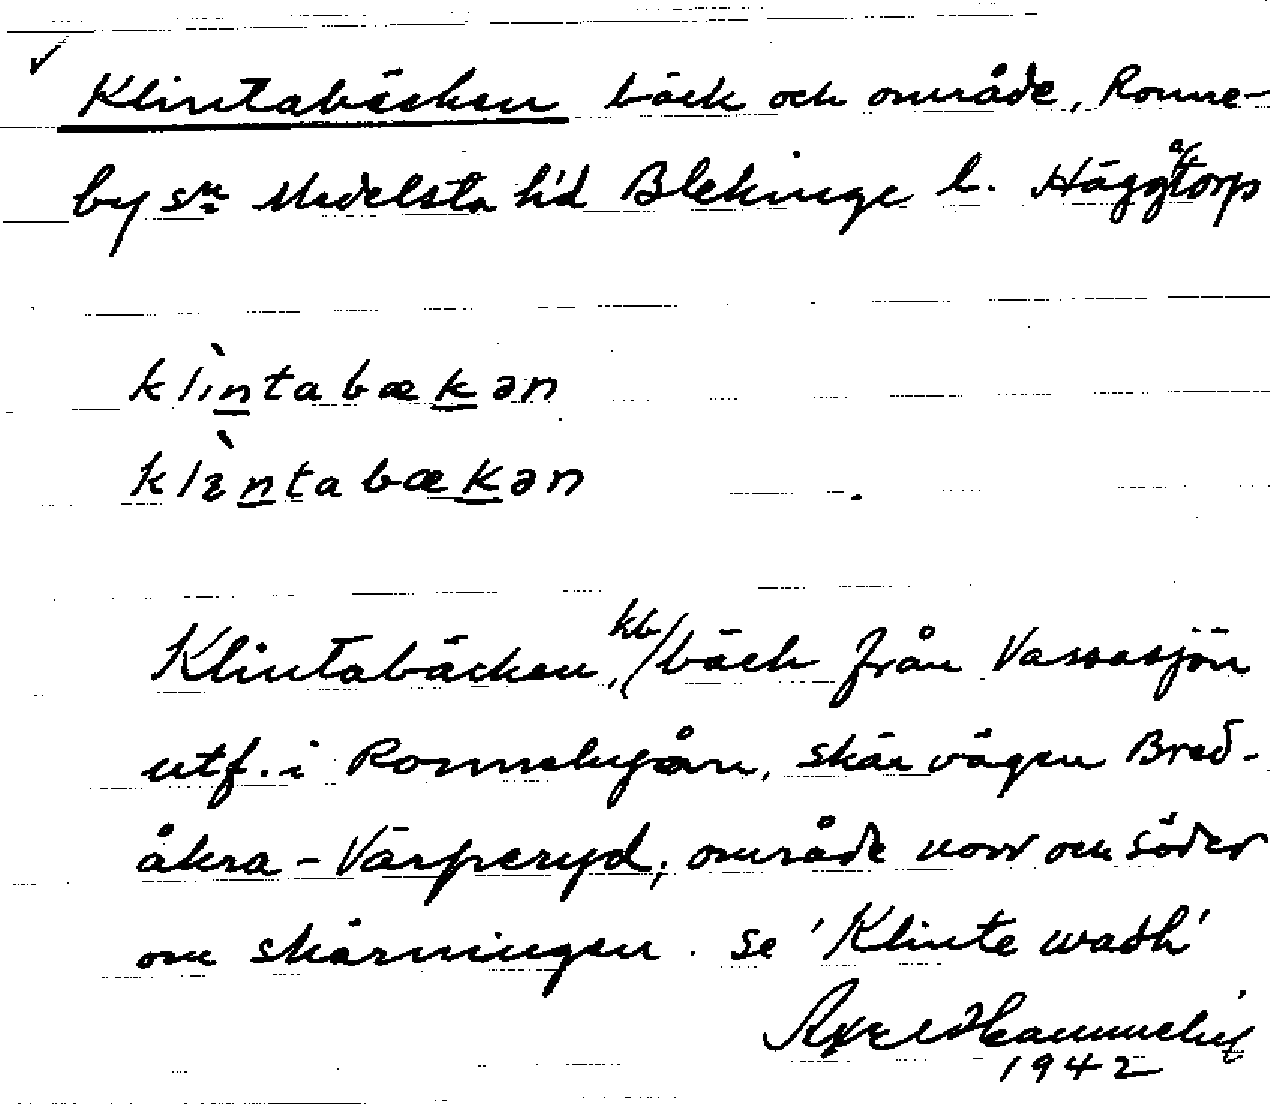 Klintabäcken bäck och område, Ronne-
by sn Medelsta hd Blekinge l. Häggatorp
klìntabækən
klìntabækən
Klintabäcken, bäck från Vassasjön
utf. i Ronnebyån, skär vägen Bred-
åkra - Värperyd; område norr och söder
om skärningen. Se 'Klinte wadh'
Axel
1942